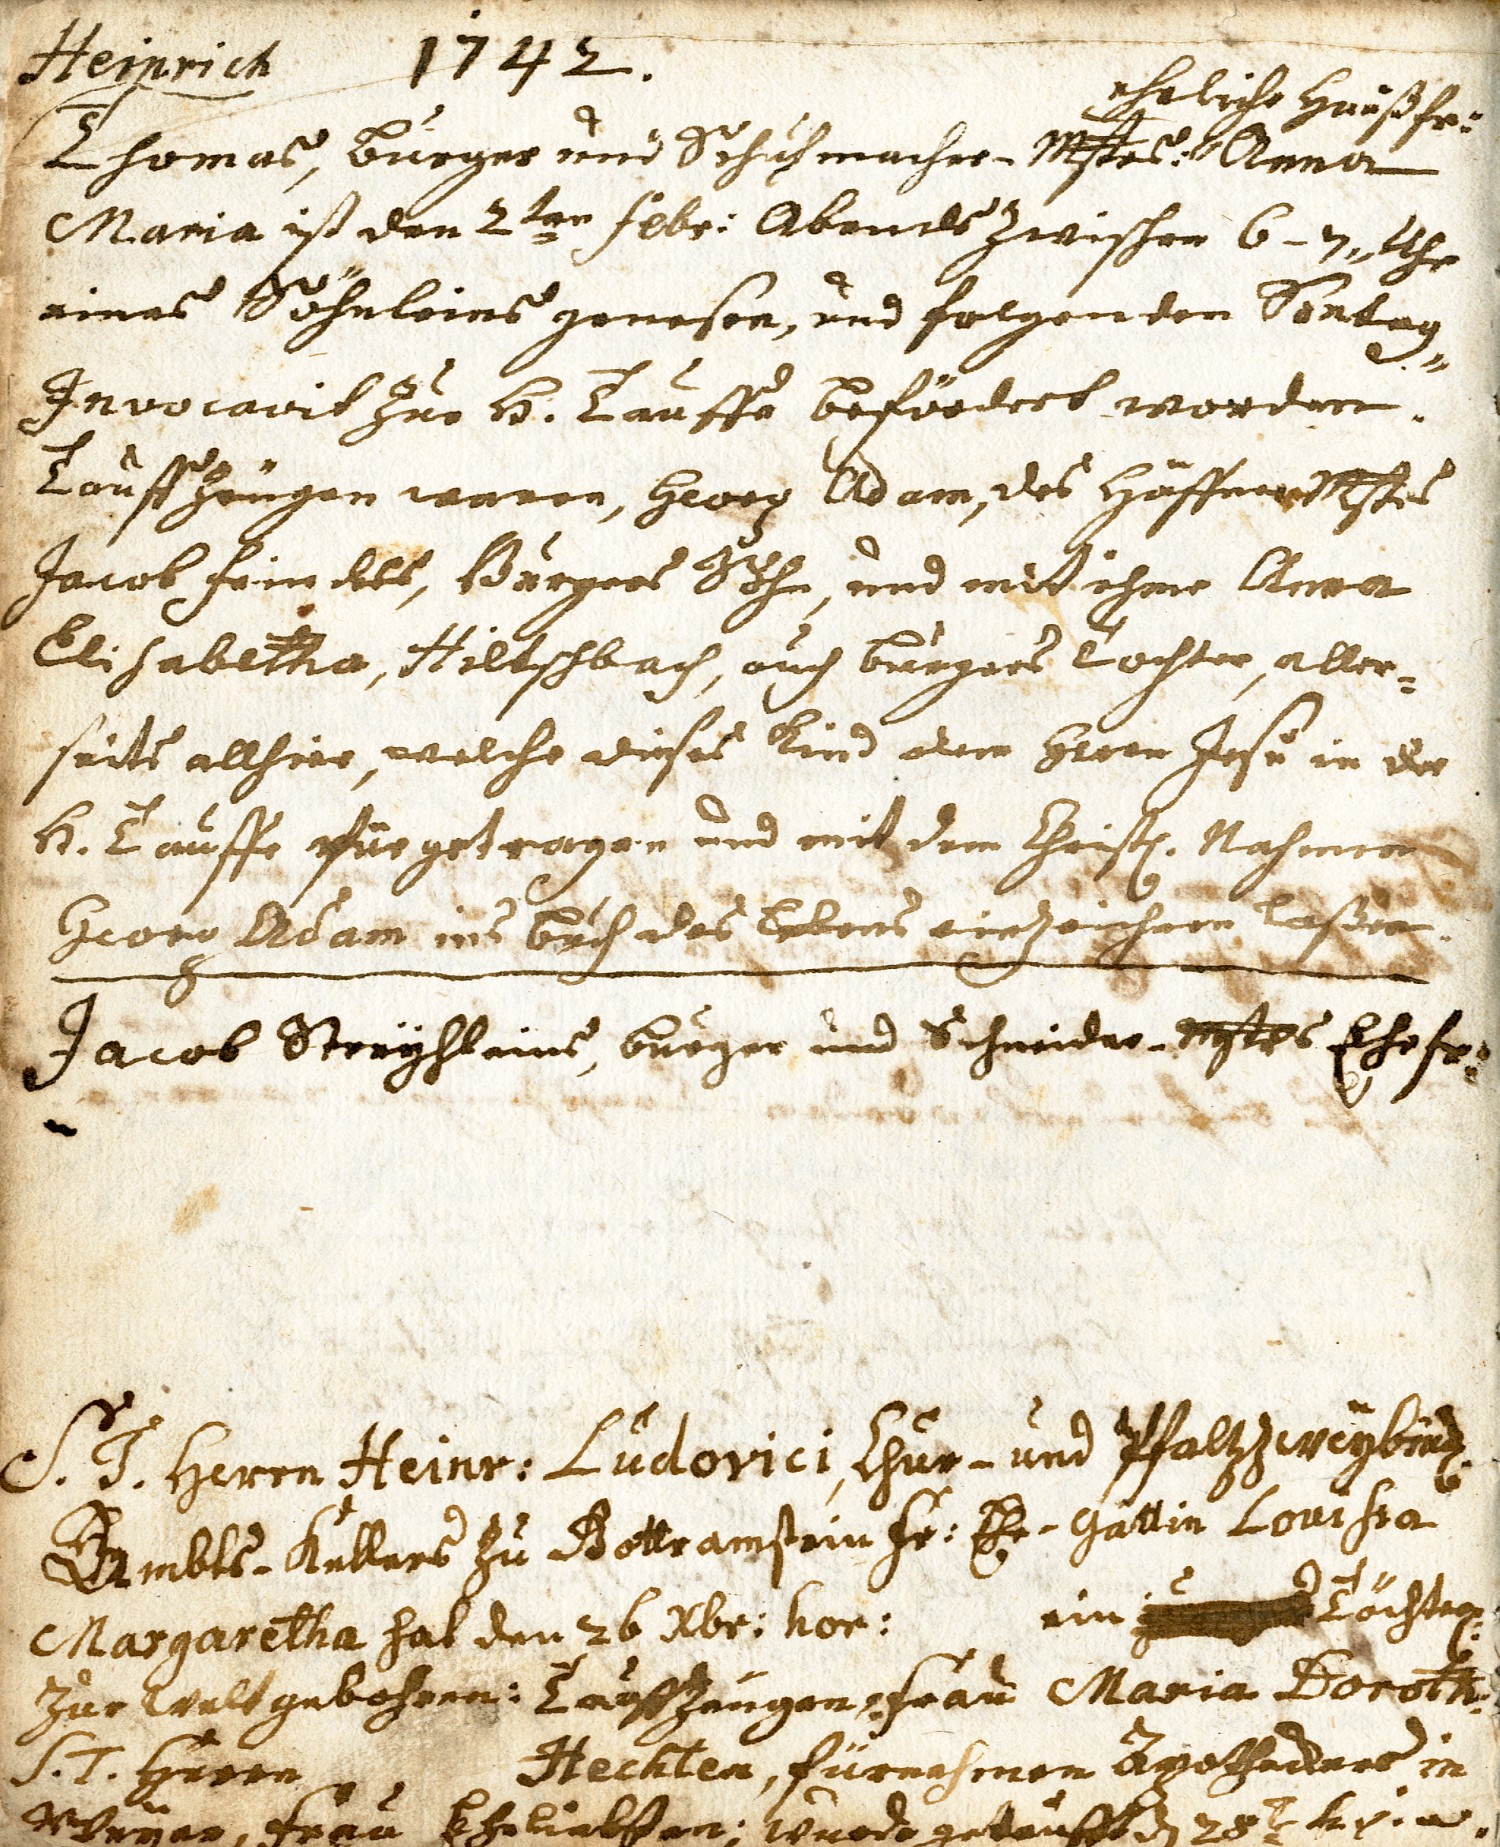 Heinrich 1742.
eheliche Haußfr:
Thomas, burger und Schuhmacher-Mstrs: Anna
Maria ist den 2ten febr: Abends zwischen 6-7,, Uhr
eines Söhnleins genesen, und folgenden Sontag,,
Invocavit zur H. Tauffe befördert worden.
Tauffzeugen waren, Georg Adam, des Häffner Mstrs
Jacob feindels, Burgers Sohn, und mit ihme Anna
Elisabetha, Hiltschbach, auch burgers tochter, aller-
seits allhier, welche dieses Kind dem Herrn Jesu in der
H. Tauffe fürgetragen und mit dem Christl. Nahmen
Georg Adam ins buch des Lebens einzeichnen laßen.
Jacob burger und Schneider-Mstrs Ehefr:
S. T. Herrn Heinr: Ludovici, Chur- und Pfaltzzweybrüg.
Ambts-Kellers zu fr: Ehe-Gattin Louisea
Margaretha hat den 26 Xbr: hor: ein Töchterl:
zur Welt gebohren: Tauffzeugen: frau Maria Doroth:
S. T. Herrn Hechten, fürnehmen Apotheckers in
frau Eheliebsten; wurde getaufft d 28